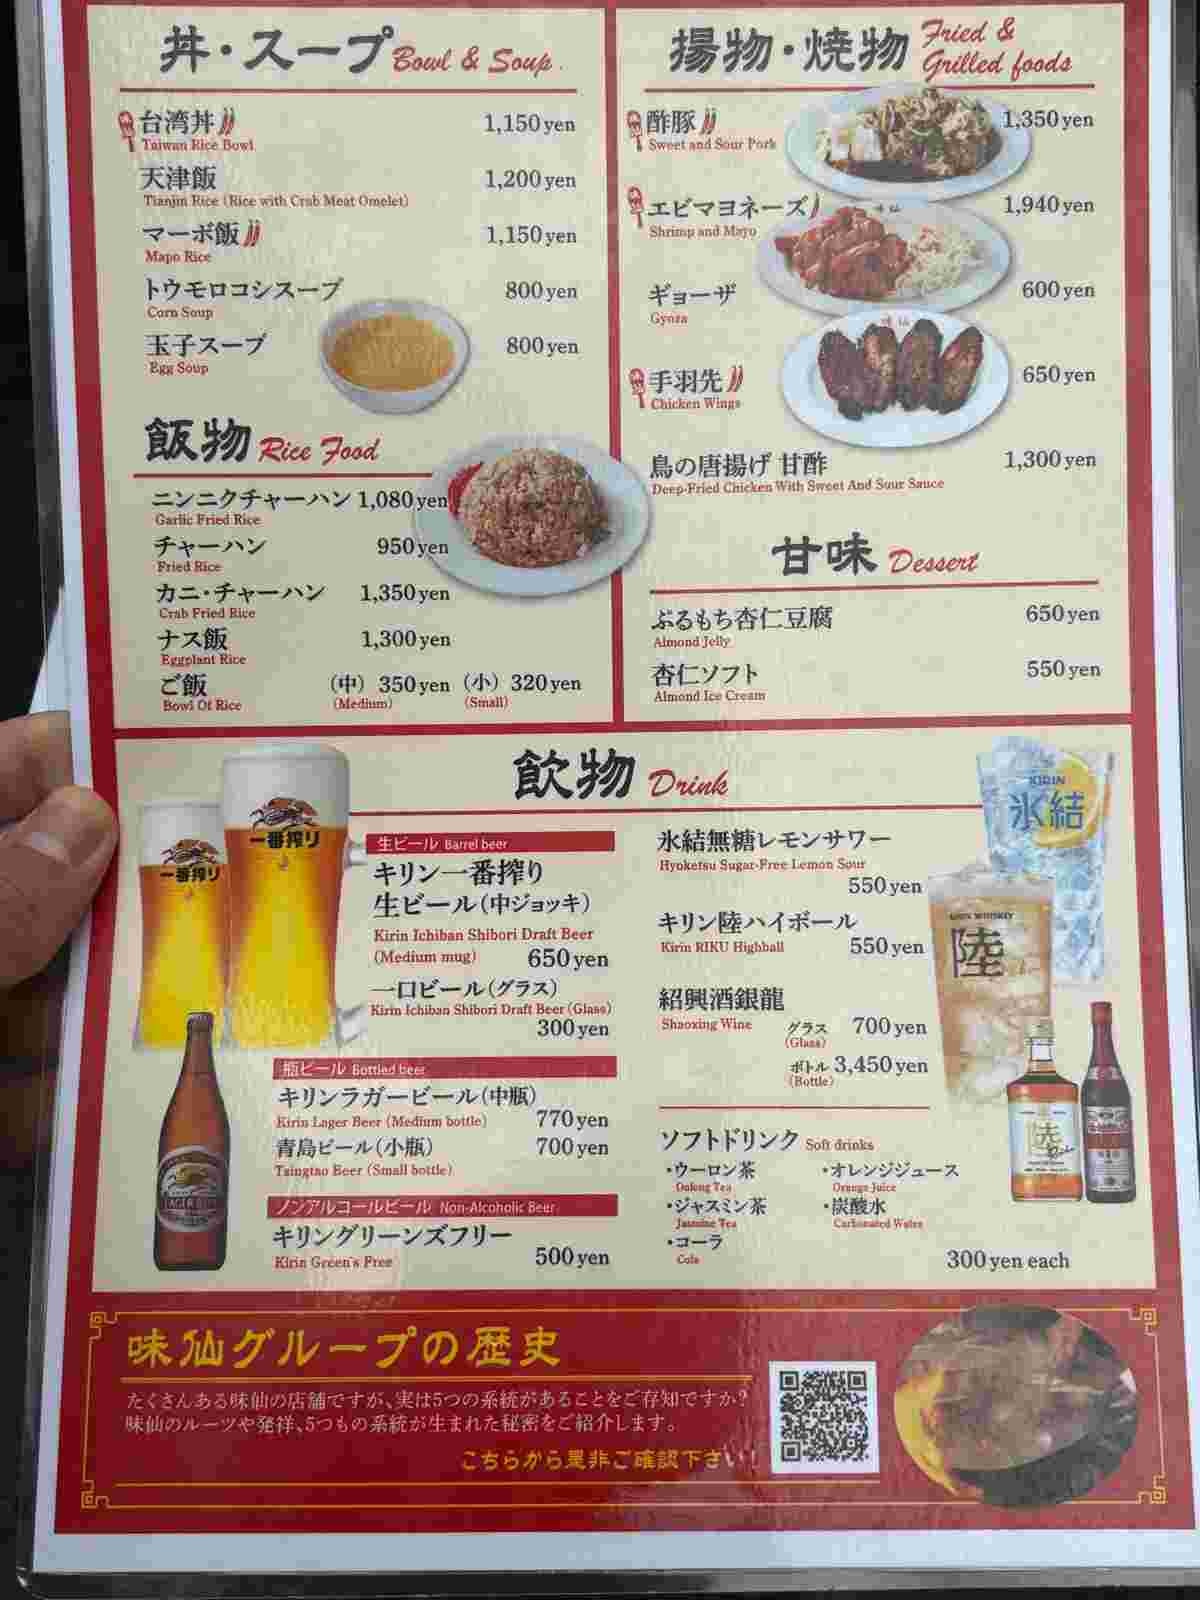 丼・スープ Bowl & Soup.
台湾丼 1,150 yen
Taiwan Rice Bowl
天津飯 1,200 yen
Tianjin Rice (Rice with Crab Meat Omelet)
マーボ飯 1,150 yen
Mapo Rice
トウモロコシスープ 800 yen
Corn Soup
玉子スープ 800 yen
Egg Soup
飯物 Rice Food
ニンニクチャーハン 1,080 yen
Garlic Fried Rice
チャーハン 950 yen
Fried Rice
カニ・チャーハン 1,350 yen
Crab Fried Rice
ナス飯 1,300 yen
Eggplant Rice
ご飯 (中) 350 yen (小) 320 yen
Bowl Of Rice (Medium) (Small)
揚物・焼物 Fried &
Grilled foods
酢豚 1,350 yen
Sweet and Sour Pork
エビマヨネーズ 1,940 yen
Shrimp and Mayo
味仙
ギョーザ 600 yen
Gyoza
味仙
手羽先 650 yen
Chicken Wings
鳥の唐揚げ 甘酢 1,300 yen
Deep-Fried Chicken With Sweet And Sour Sauce
甘味 Dessert
ぷるもち杏仁豆腐 650 yen
Almond Jelly
杏仁ソフト 550 yen
Almond Ice Cream
飲物 Drink
一番搾り
一番搾り
生ビール Barrel beer
キリン一番搾り
生ビール(中ジョッキ)
Kirin Ichiban Shibori Draft Beer
(Medium mug) 650 yen
一口ビール(グラス)
Kirin Ichiban Shibori Draft Beer (Glass)
300 yen
瓶ビール Bottled beer
キリンラガービール(中瓶)
Kirin Lager Beer (Medium bottle) 770 yen
青島ビール(小瓶) 700 yen
Tsingtao Beer (Small bottle)
LAGER BEER
ノンアルコールビール Non-Alcoholic Beer
キリングリーンズフリー
Kirin Green's Free 500 yen
氷結無糖レモンサワー
Hyoketsu Sugar-Free Lemon Sour
550 yen
キリン陸ハイボール
Kirin RIKU Highball 550 yen
紹興酒銀龍
Shaoxing Wine グラス 700 yen
(Glass)
ボトル 3,450 yen
(Bottle)
KIRIN
氷結
KIRIN WHISKEY
陸
陸
ソフトドリンク Soft drinks
・ウーロン茶 ・オレンジジュース
Oolong Tea Orange Juice
・ジャスミン茶 ・炭酸水
Jasmine Tea Carbonated Water
・コーラ
Cola
300 yen each
味仙グループの歴史
たくさんある味仙の店舗ですが、実は5つの系統があることをご存知ですか?
味仙のルーツや発祥、5つもの系統が生まれた秘密をご紹介します。
こちらから是非ご確認下さい!